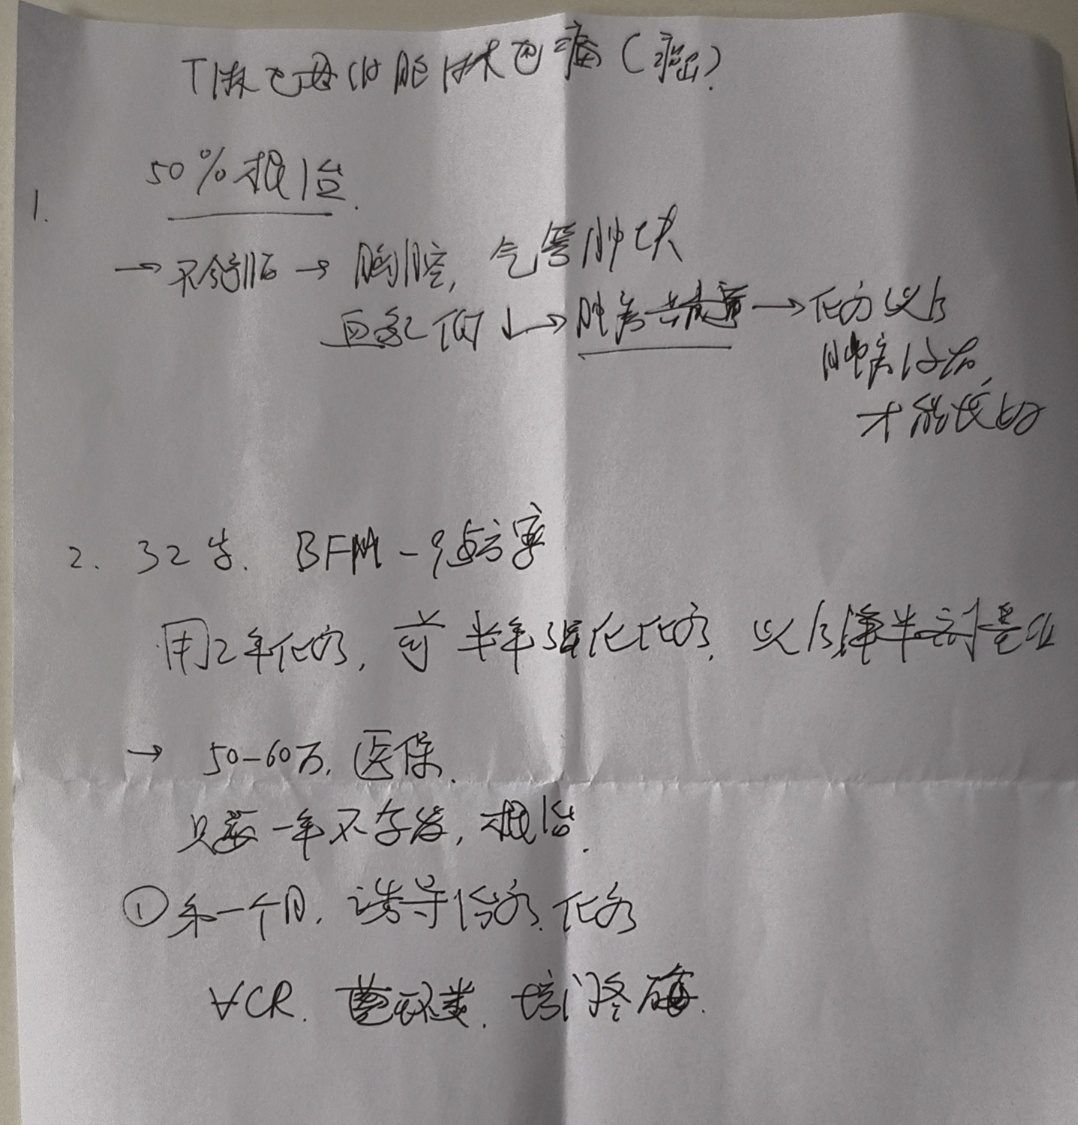 T淋巴母细胞淋巴瘤(
1. 50%根治.
→ 不舒服 → 胸腔, 气管肿块
血氧低↓→ 肿瘤 → 化疗以后
肿瘤
才能
2. 32岁. BFM-90方案
用2年化疗, 前半年强化化疗, 以后降半剂量化
→ 50-60万, 医保.
只要一年不复发, 根治.
① 第一个月, 诱导治疗. 化疗
VCR. 蒽环类. 培门冬酶.